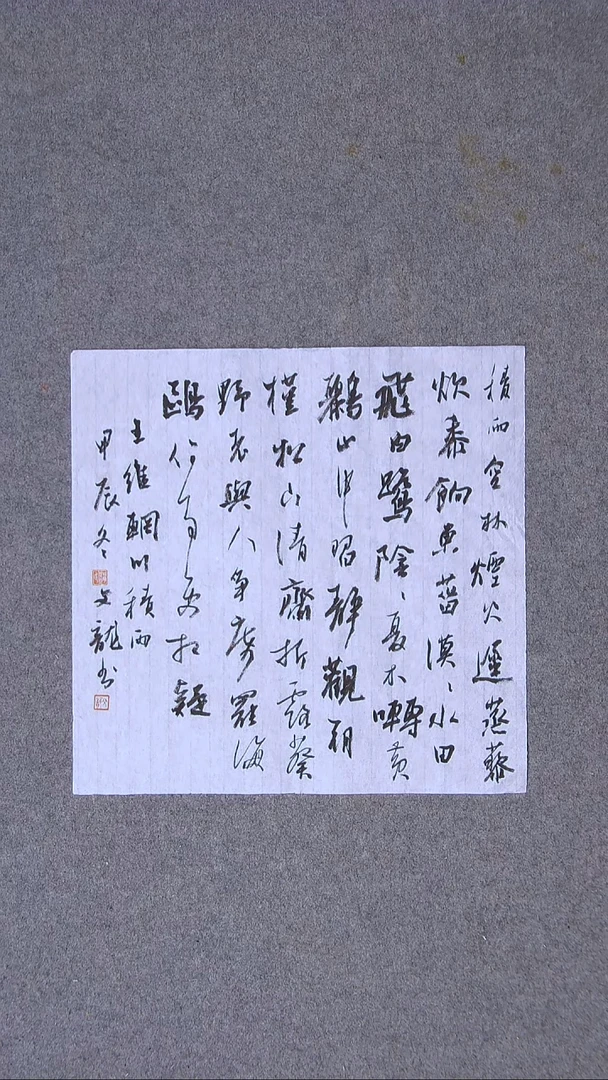 積雨空林煙火遲蒸藜
炊黍餉東菑漠〻水田
飛白鷺陰〻夏木囀黃
鸝山中習靜觀朝
槿松下清齋折露葵
野老與人爭席罷海
鷗何事更相疑
王維輞川積雨
甲辰冬文龍書